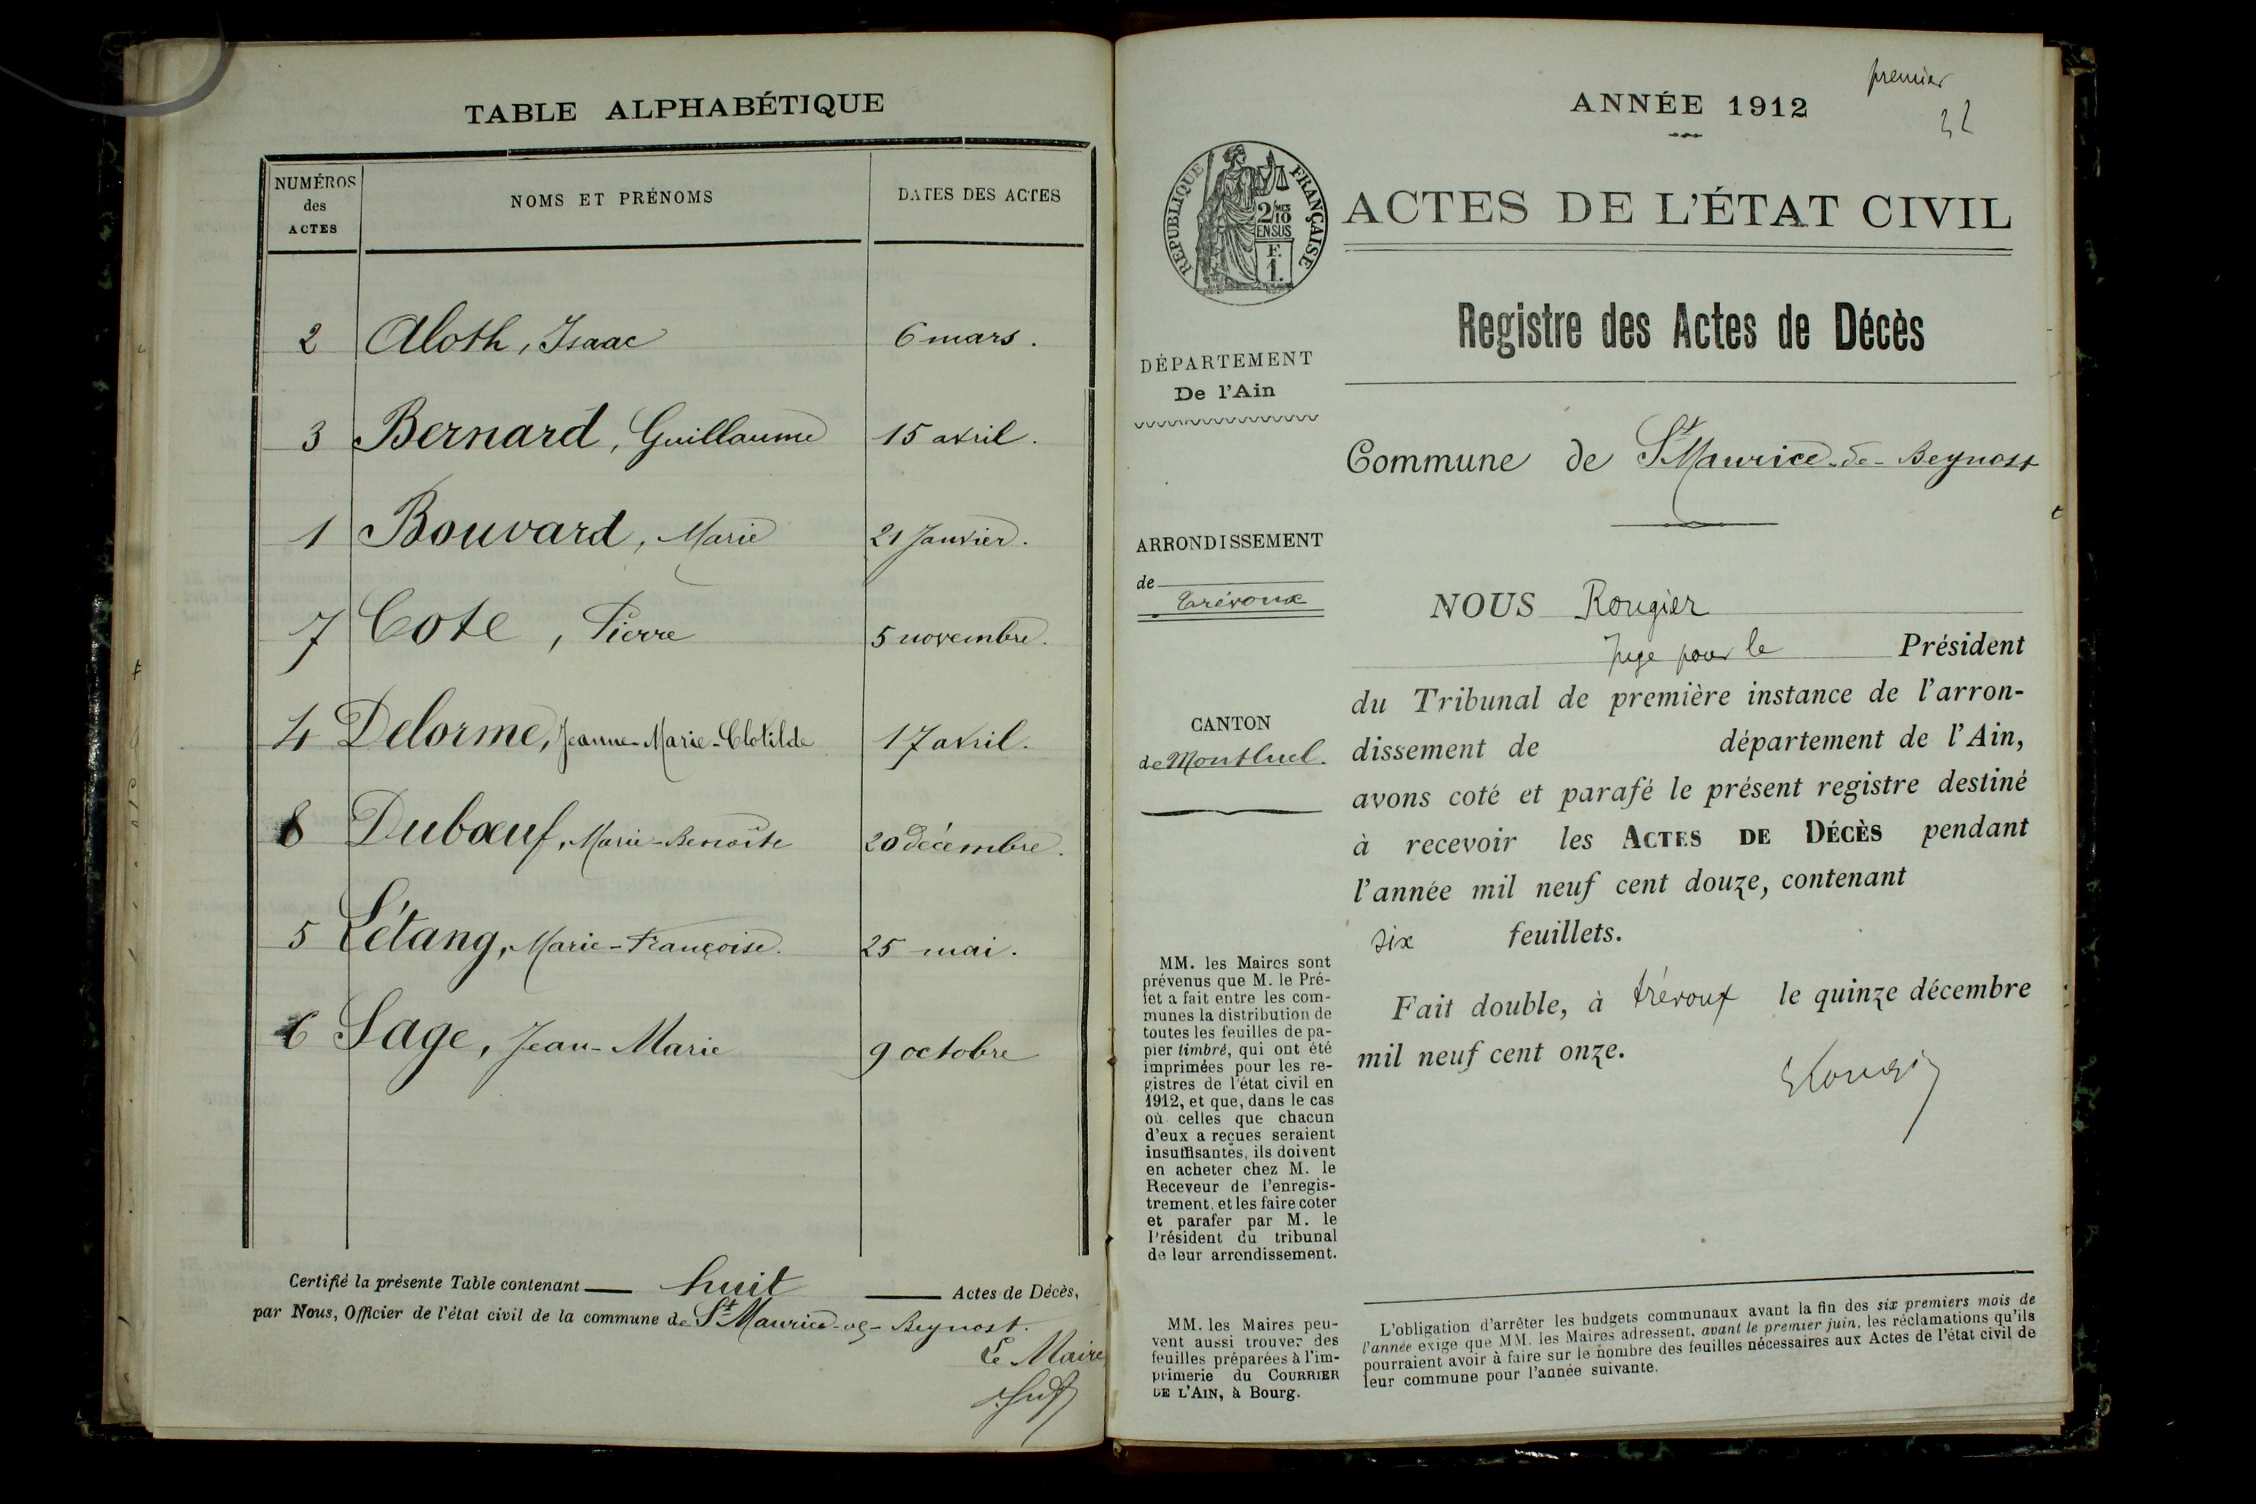 TABLE ALPHABÉTIQUE
NUMÉROS des ACTES
NOMS ET PRÉNOMS
DATES DES ACTES
2 Aloth, Isaac 6 mars.
3 Bernard, Guillaume 15 avril.
1 Bouvard, Marie 21 Janvier.
7 Cote, Pierre 5 novembre.
4 Delorme, Jeanne-Marie-Clotilde 17 avril.
8 Dubœuf, Marie-Benoîte 20 décembre.
5 Létang, Marie-Françoise. 25 mai.
6 Sage, Jean-Marie 9 octobre
Certifié la présente Table contenant huit Actes de Décès,
par Nous, Officier de l'état civil de la commune de St Maurice-de-Beynost.
Le Maire
premier
ANNÉE 1912
RÉPUBLIQUE FRANÇAISE
2/10 MES
EN SUS
F.
1.
ACTES DE L'ÉTAT CIVIL
Registre des Actes de Décès
DÉPARTEMENT
De l'Ain
Commune de St Maurice-de-Beynost
ARRONDISSEMENT
de
Trévoux
CANTON
de Montluel.
NOUS Rougier
Juge pour le Président
du Tribunal de première instance de l'arron-
dissement de département de l'Ain,
avons coté et parafé le présent registre destiné
à recevoir les ACTES DE DÉCÈS pendant
l'année mil neuf cent douze, contenant
six feuillets.
Fait double, à trévoux le quinze décembre
mil neuf cent onze.
MM. les Maires sont
prévenus que M. le Pré-
fet a fait entre les com-
munes la distribution de
toutes les feuilles de pa-
pier timbré, qui ont été
imprimées pour les re-
gistres de l'état civil en
1912, et que, dans le cas
où celles que chacun
d'eux a reçues seraient
insuffisantes, ils doivent
en acheter chez M. le
Receveur de l'enregis-
trement, et les faire coter
et parafer par M. le
Président du tribunal
de leur arrondissement.
MM. les Maires peu-
vent aussi trouver des
feuilles préparées à l'im-
primerie du COURRIER
DE L'AIN, à Bourg.
L'obligation d'arrêter les budgets communaux avant la fin des six premiers mois de
l'année exige que MM. les Maires adressent, avant le premier juin, les réclamations qu'ils
pourraient avoir à faire sur le nombre des feuilles nécessaires aux Actes de l'état civil de
leur commune pour l'année suivante.